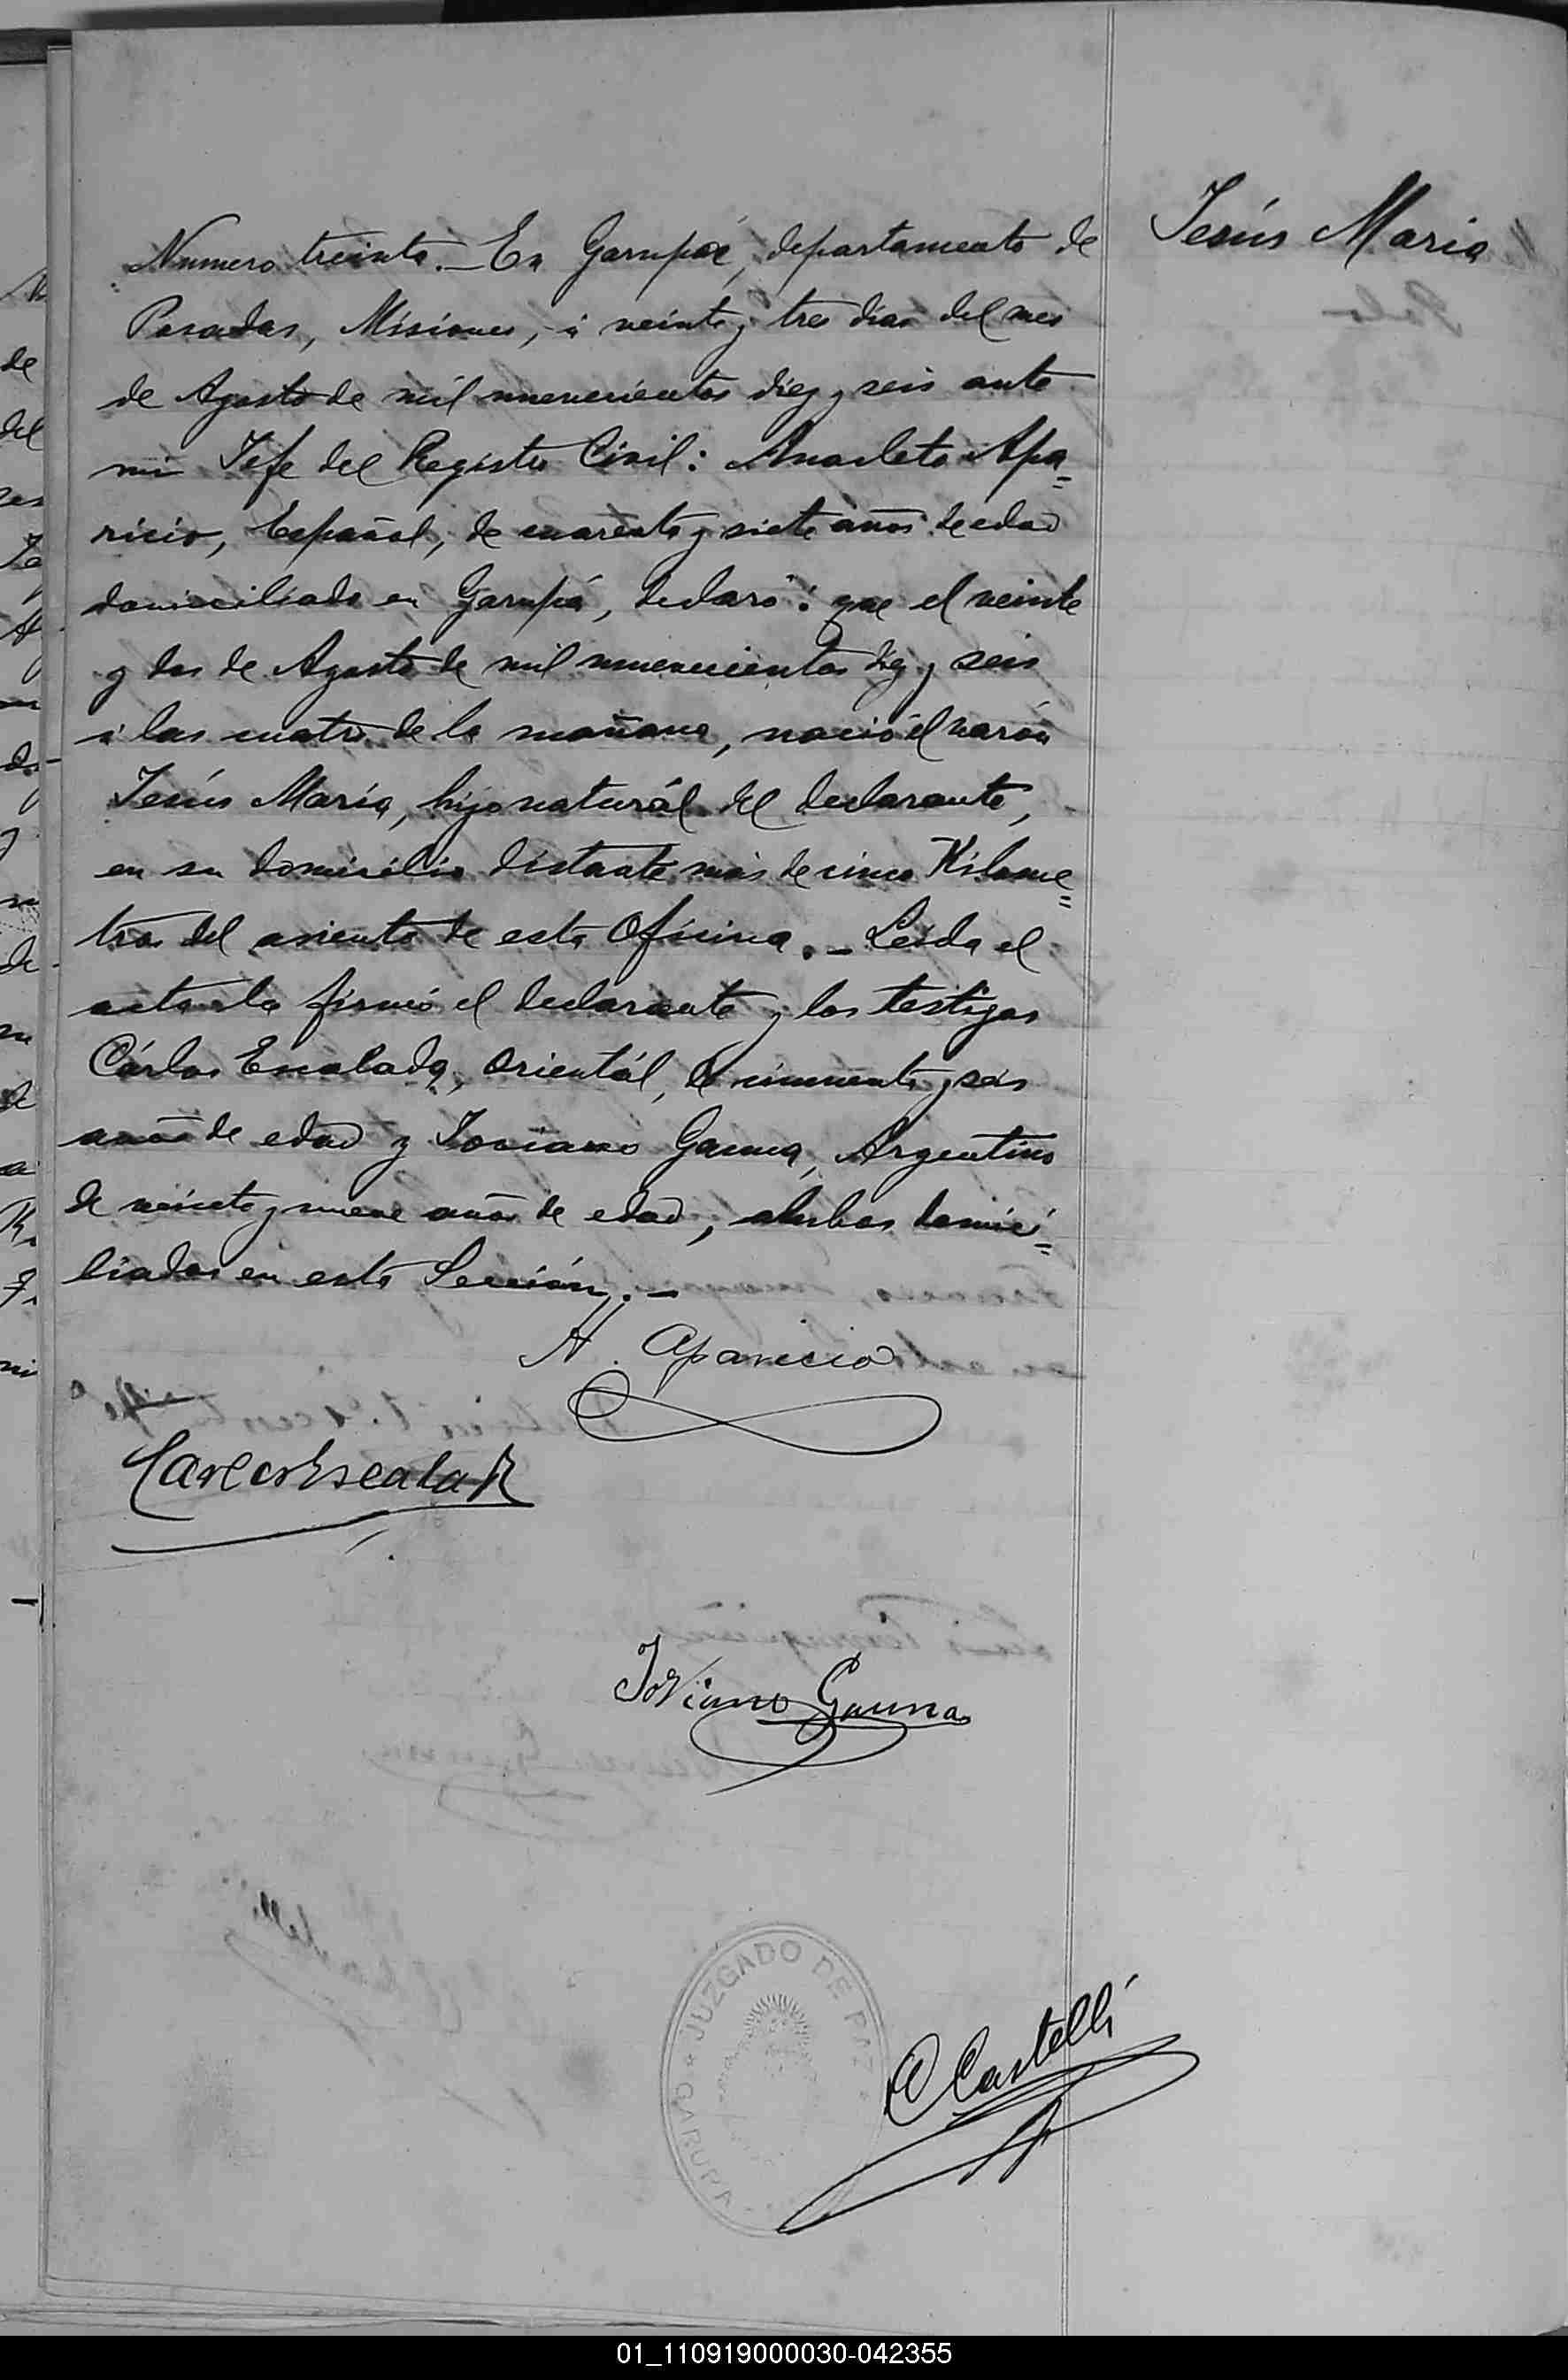 Jesús Maria
Numero treinta. — En Garupá, departamento de
Posadas, Misiones, á veinte y tres dias del mes
de Agosto de mil novecientos diez y seis ante
mi Jefe del Registro Civil: Anacleto Apa=
ricio, Español, de cuarenta y siete años de edad
domiciliado en Garupá, declaró: que el veinte
y dos de Agosto de mil novecientos diez y seis
á las cuatro de la mañana, nació el varón
Jesús María, hijo naturál del declarante,
en su domicilio distante más de cinco Kilome=
tros del asiento de esta Oficina. — Leida el
acta la firmó el declarante y los testigos
Cárlos Escalada, Orientál, de cincuenta y seis
años de edad y Joviano Gauna, Argentino
de veinte y nueve años de edad, ambos domici=
liados en esta Sección. —
A. Aparicio
Carlos Escalada
Joviano Gauna
JUZGADO DE PAZ
GARUPA
C Castelli
01_110919000030-042355